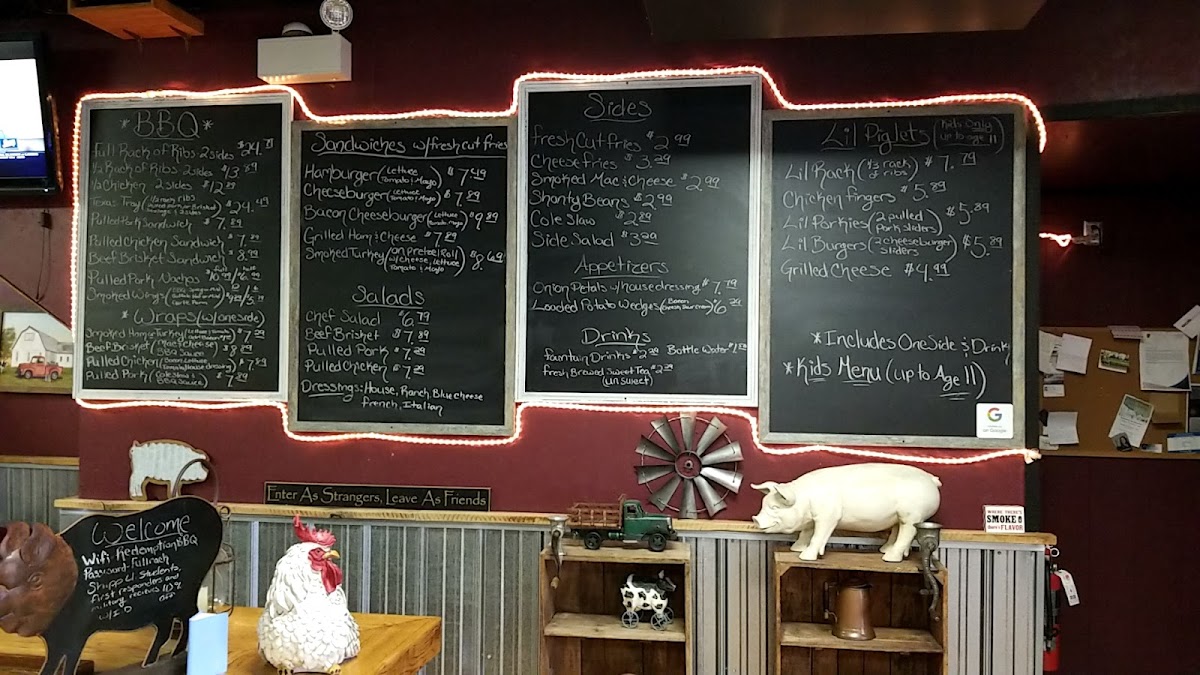 *BBQ*
Full Rack of Ribs 2 sides $24.79
½ Rack of Ribs 2 sides $13.89
½ Chicken 2 sides $12.89
Texas Troy
$24.49
Pulled Pork Sandwich $7.89
Pulled Chicken Sandwich $7.89
Beef Brisket Sandwich $8.99
Pulled Pork Nachos
Smoked Wings
*Wraps (w/one side)
Smoked Ham or Turkey $7.29
Beef Brisket (Mac & cheese BBQ Sauce) $8.89
Pulled Chicken (Bacon, Lettuce Tomato, House dressing) $7.89
Pulled Pork (Cole Slaw & BBQ Sauce) $7.89
Sandwiches w/fresh cut fries
Hamburger (Lettuce Tomato & Mayo) $7.49
Cheseburger (Lettuce Tomato & Mayo) $7.89
Bacon Cheeseburger (Lettuce Tomato, Mayo) $9.89
Grilled Ham & Cheese $7.89
Smoked Turkey (on Pretzel Roll w/cheese, Lettuce Tomato & Mayo) $8.69
Salads
Chef Salad $6.79
Beef Brisket $7.89
Pulled Pork $7.29
Pulled Chicken $7.29
Dressings: House, Ranch, Blue cheese
french, Italian
Sides
fresh Cut fries $2.99
Cheese fries $3.29
Smoked Mac & Cheese $2.99
Shanty Beans $2.99
Cole Slaw $2.89
Side Salad $3.29
Appetizers
Onion Petals w/house dressing $7.79
Loaded Potato Wedges (Bacon Cheese, Sour cream) $6.79
Drinks
fountain Drinks $2.29 Bottle Water
fresh Brewed Sweet Tea $2.29
(unsweet)
Lil Piglets (Kids Only up to age 11)
Lil Rack (⅓ rack of ribs) $7.79
Chicken fingers $5.89
Lil Porkies (2 pulled Pork Sliders) $5.89
Lil Burgers (2 cheeseburger sliders) $5.89
Grilled Cheese $4.99
*Includes One Side & Drink
*Kids Menu (up to Age 11)
G
Enter As Strangers, Leave As Friends
WHERE THERE'S
SMOKE
there's FLAVOR
Welcome
Wifi- Redemption BBQ
Password- Fullrack
Shipp U. Students,
first responders and
military recieves 10%
w/I.D off